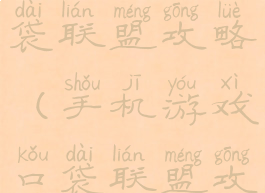 dài lián méng gōng lüè
袋联盟攻略
shǒu jī yóu xì
（手机游戏
kǒu dài lián méng gōng
口袋联盟攻